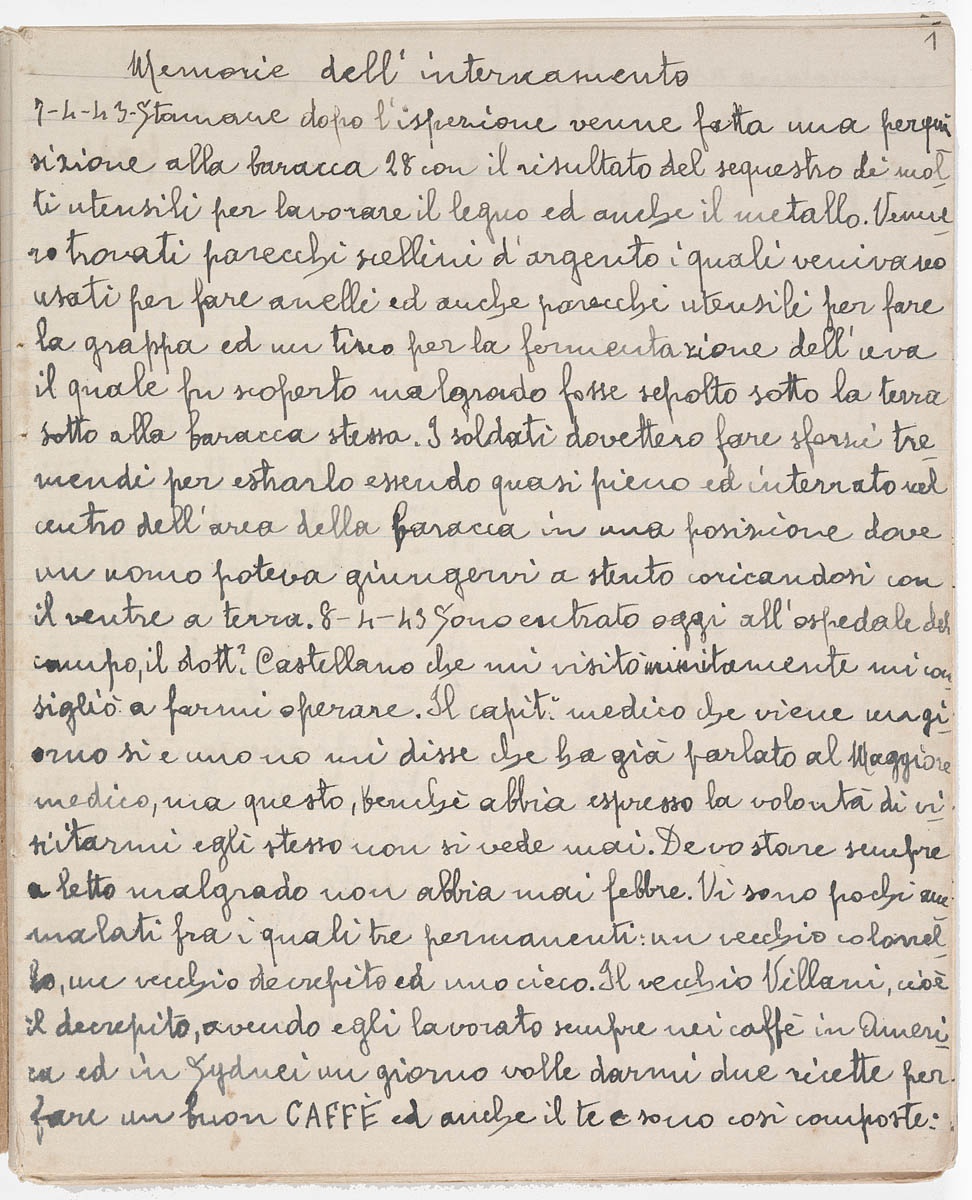 1
Memorie dell'internamento
7-4-43-Stamane dopo l'ispezione venne fatta una perqui
sizione alla baracca 28 con il risultato del sequestro di mol-
ti utensili per lavorare il legno ed anche il metallo. Venne-
ro trovati parecchi scellini d'argento i quali venivano
usati per fare anelli ed anche parecchi utensili per fare
la grappa ed un tino per la fermentazione dell'uva
il quale fu scoperto malgrado fosse sepolto sotto la terra
sotto alla baracca stessa. I soldati dovettero fare sforzi tre-
mendi per estrarlo essendo quasi pieno ed interrato nel
centro dell'area della baracca in una posizione dove
un uomo poteva giungervi a stento coricandosi con
il ventre a terra. 8-4-43 Sono entrato oggi all'ospedale del
campo, il dott? Castellano che mi visitò minitamente mi con-
sigliò a farmi operare. Il capit: medico che viene un gi-
orno si e uno no mi disse che ha già parlato al Maggiore
medico, ma questo, benchè abbia espresso la volontà di vi-
sitarmi egli stesso non si vede mai. Devo stare sempre
a letto malgrado non abbia mai febbre. Vi sono pochi am-
malati fra i quali tre permanenti: un vecchio colonel-
lo, un vecchio decrepito ed uno cieco. Il vecchio Villani, cioè
il decrepito, avendo egli lavorato sempre nei caffè in Ameri-
ca ed in Sydnei un giorno volle darmi due ricette per
fare un buon CAFFÈ ed anche il te e sono così composte: